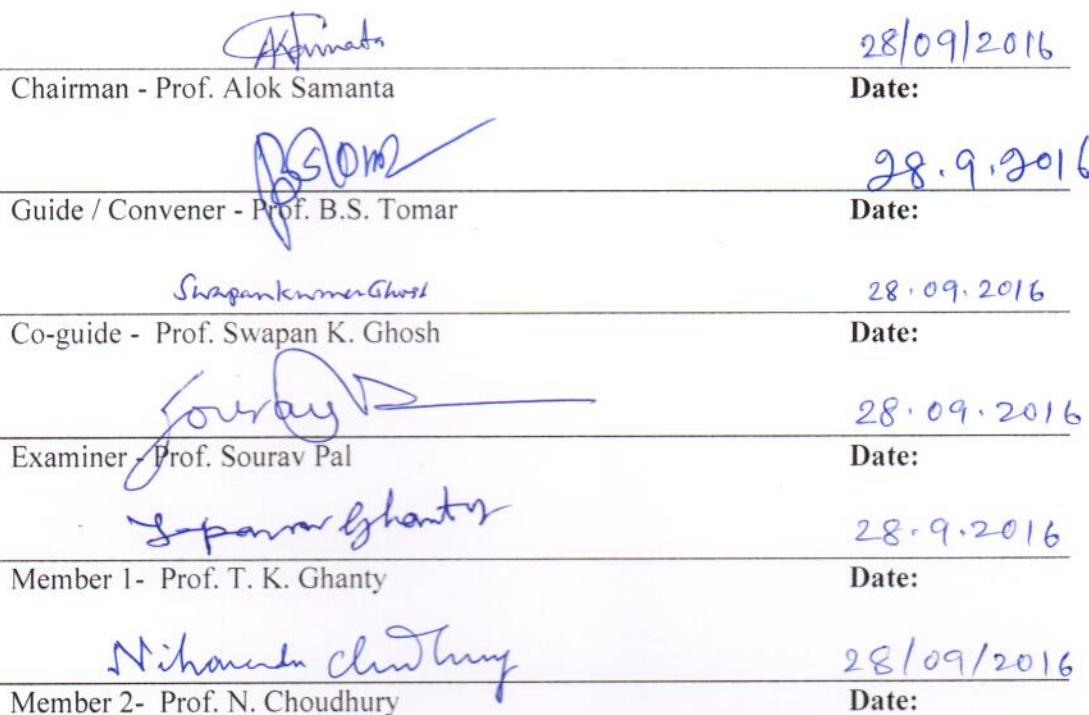 AKSamanta 28/09/2016
Chairman - Prof. Alok Samanta Date:
BSTomar 28.9.2016
Guide / Convener - Prof. B.S. Tomar Date:
Swapan Kumar Ghosh 28.09.2016
Co-guide - Prof. Swapan K. Ghosh Date:
Sourav 28.09.2016
Examiner - Prof. Sourav Pal Date:
Tapan Ghanty 28.9.2016
Member 1- Prof. T. K. Ghanty Date:
Niharendu Choudhury 28/09/2016
Member 2- Prof. N. Choudhury Date: